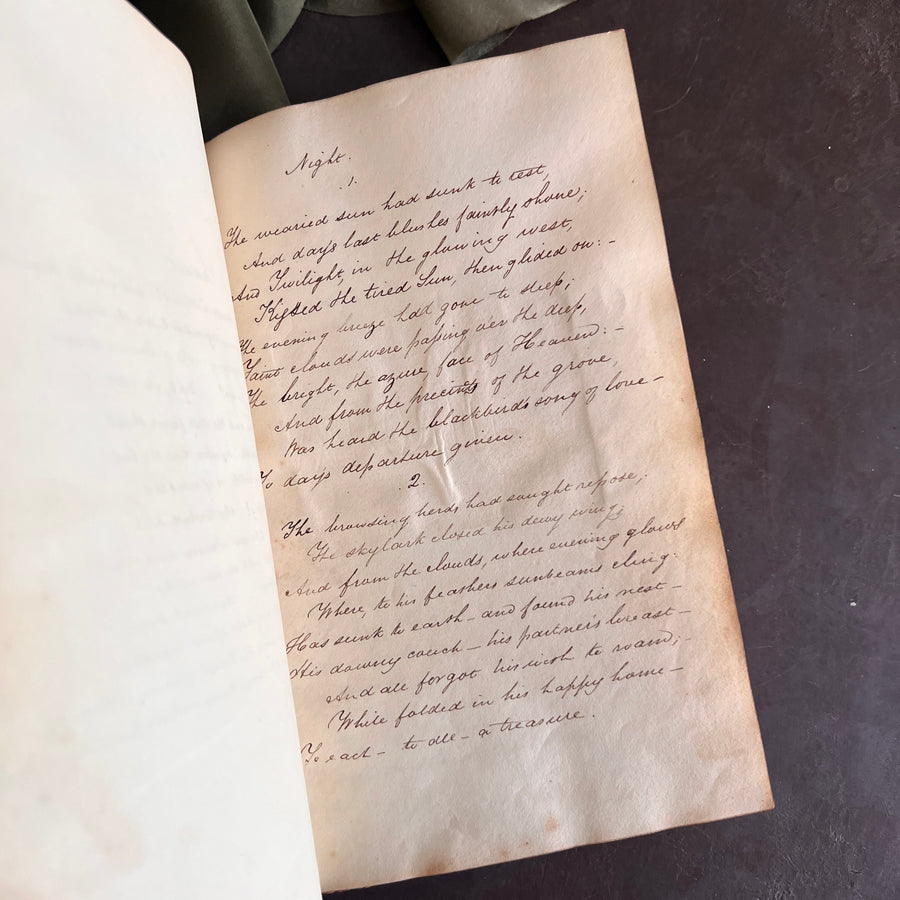 Night.
.1.
The wearied sun had sunk to rest,
And day's last blushes faintly shone;
And Twilight, in the glowing west,
Kissed the tired Sun, then glided on:-
The evening breeze had gone to sleep;
Faint clouds were passing o'er the deep,
The bright, the azure, face of Heaven:-
And from the precincts of the grove,
Was heard the blackbird's song of love-
To day's departure given.
.2.
The browsing herds had sought repose;
The skylark closed his dewy wing,
And from the clouds, where evening glows
Where, to his feathers sunbeams cling:
Has sunk to earth - and found his nest-
His downy couch - his partner's breast-
And all forgot his wish to roam;-
While folded in his happy home-
To each - to all - a treasure.